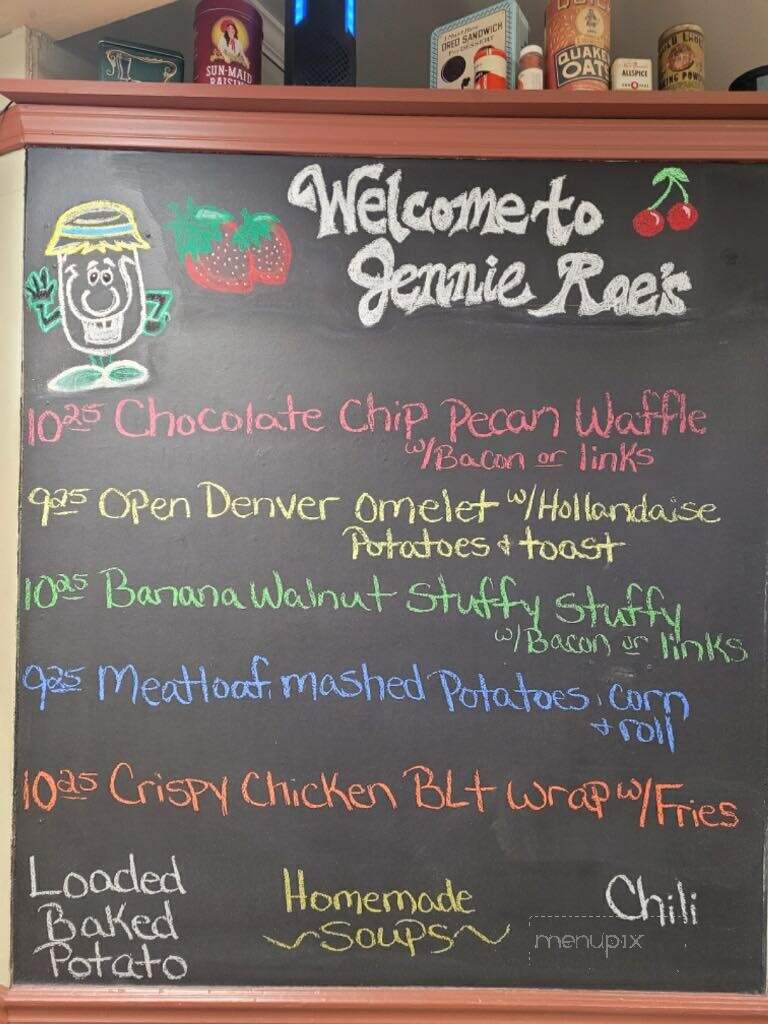 SUN-MAID
RAISINS
I Must Have
OREO SANDWICH
For DESSERT
QUAKER
OATS
ALLSPICE
Welcome to
Jennie Rae's
10 25 Chocolate Chip Pecan Waffle
w/Bacon or links
9 25 Open Denver Omelet w/Hollandaise
Potatoes & toast
10 25 Banana Walnut Stuffy Stuffy
w/Bacon or links
9 25 Meatloaf, mashed Potatoes, corn
& roll
10 25 Crispy Chicken BLT Wrap w/Fries
Loaded
Baked
Potato
Homemade
~Soups~
Chili
menupix